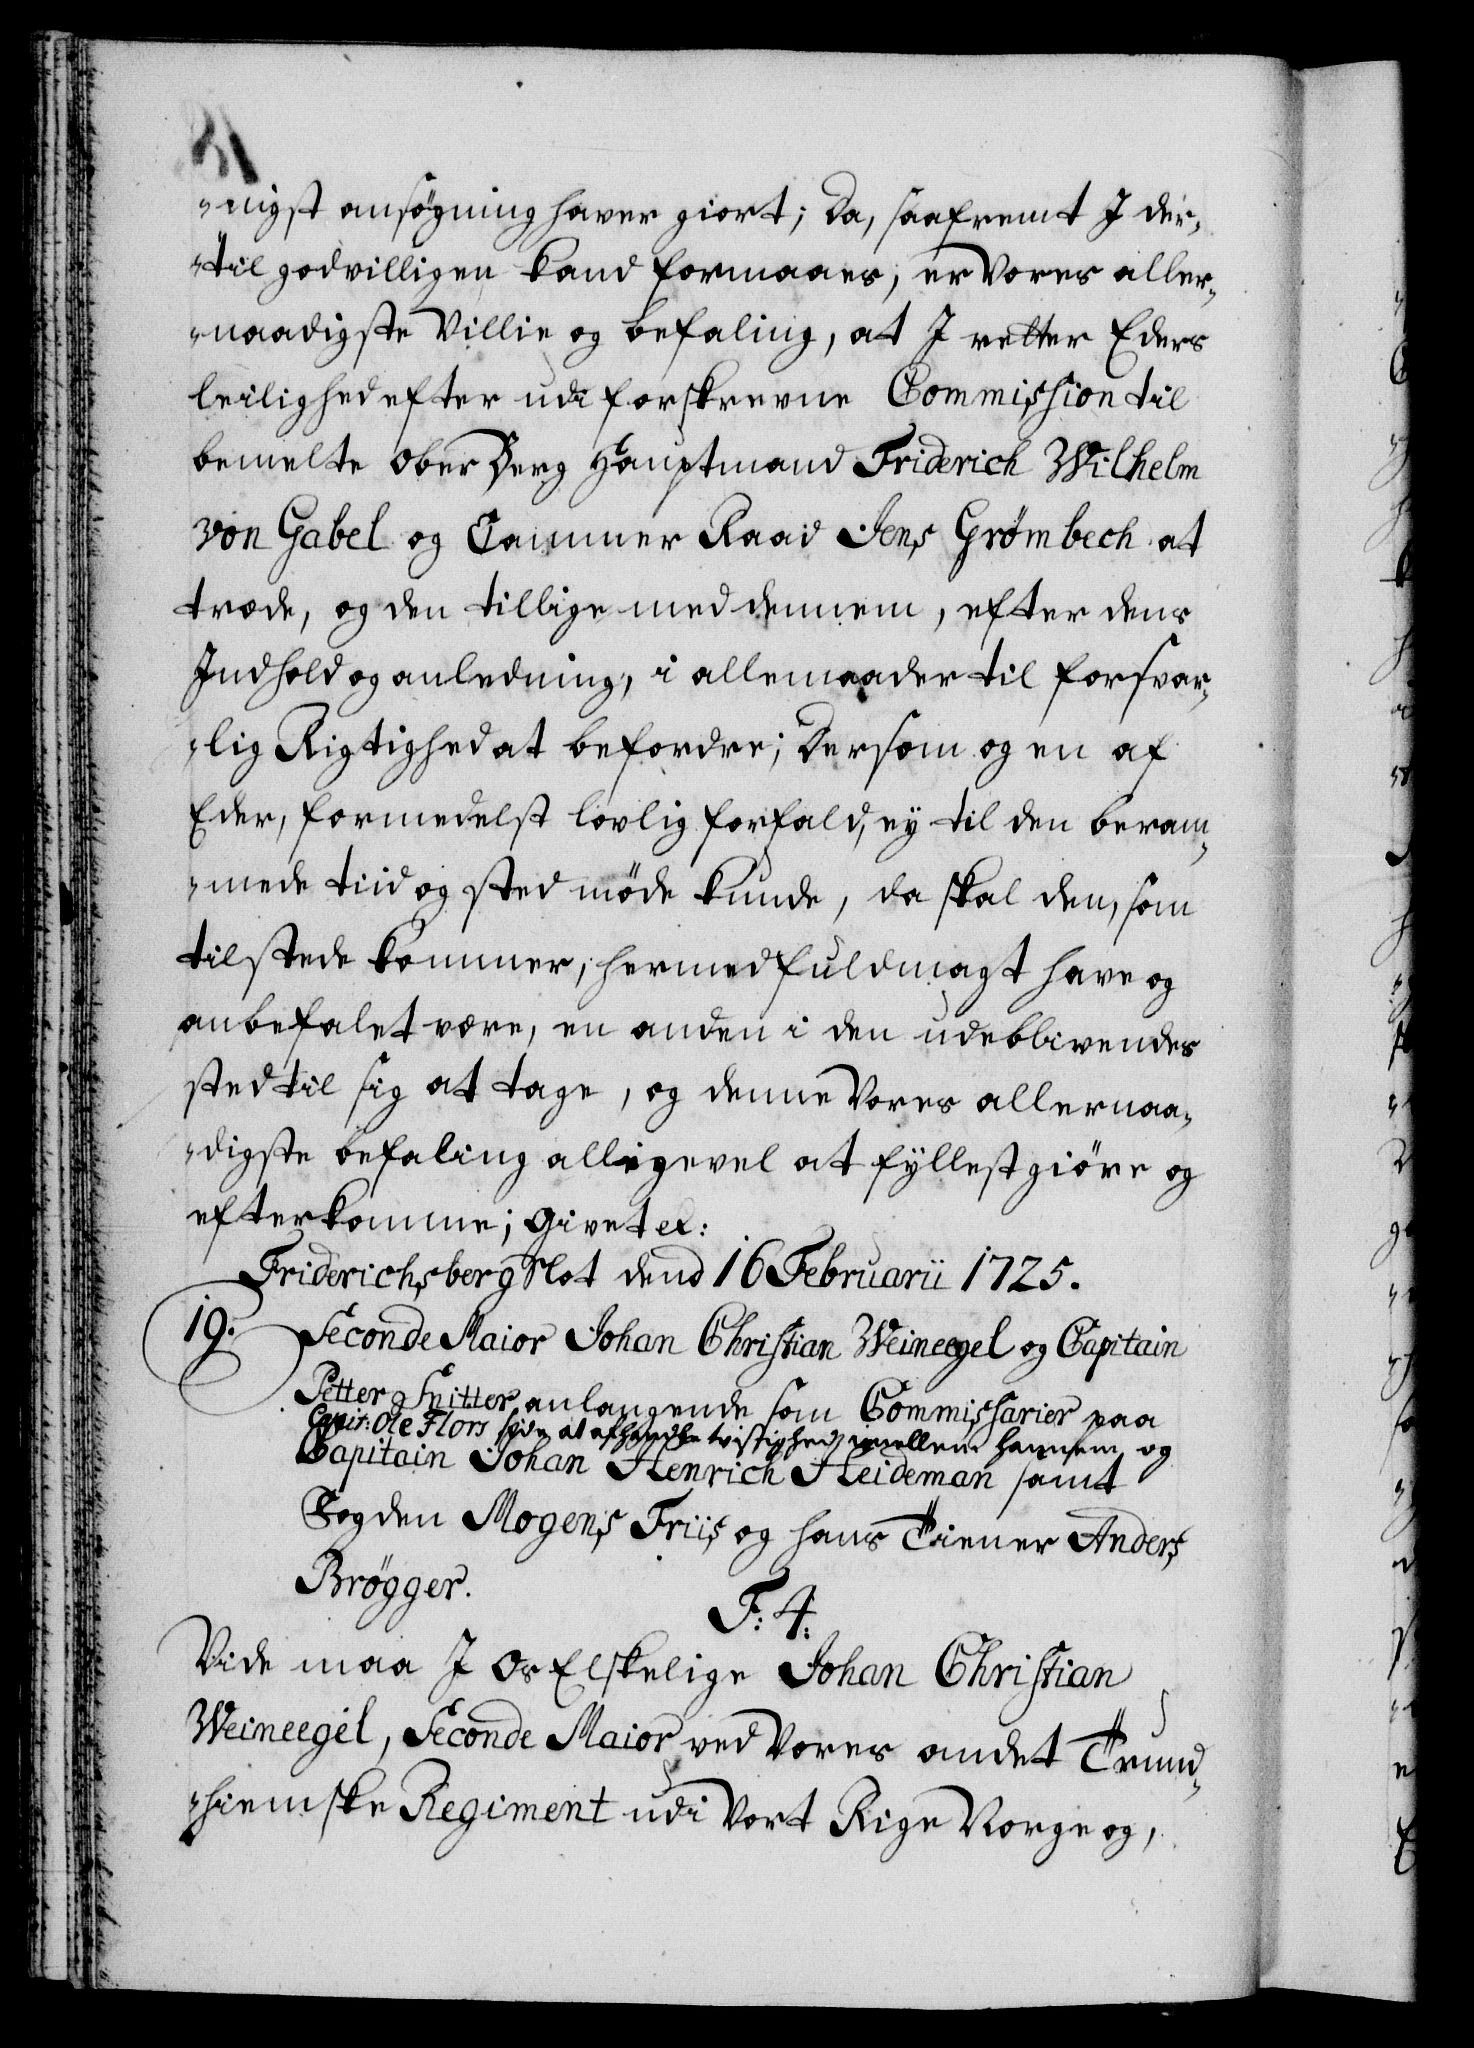 "nigst ansøgning haver giort; Da, saafremt I der-
"til godvilligen kand formaaes, er Vores aller-
"naadigste Villie og befaling, at I retter Eders
leilighed efter udi forskrevne Commission til
bemelte Ober Berg Hauptmand Friderich Wilhelm
von Gabel og Cammer Raad Jens Grømbech at
træde, og den tillige med dennem, efter dens
Indhold og anledning, i allemaader til forsvar-
"lig Rigtighed at befordre; Dersom og en af
Eder, formedelst lovlig forfald, ey til den beram-
"mede tiid og sted møde kunde, da skal den, som
tilstede kommer, hermed fuldmagt have og
anbefalet være, en anden i den udeblivendes
sted til sig at tage, og denne Vores allernaa-
"digste befaling alligevel at fyllestgiøre og
efterkomme; Givet etc:
Friderichsberg Slot dend 16 Februarii 1725.
19. Seconde Maior Johan Christian Weineegel og Capitain
Petter Snitter anlangende som Commissarier paa
Capit: Ole Flors side at afhandle tvistighed imellem hannem og
Capitain Johan Henrich Heideman samt
Fogden Mogens Friis og hans Tiener Anders
Brøgger.
F: 4:
Vide maa I Os Elskelige Johan Christian
Weineegel, Seconde Maior ved Vores andet Trund-
"hiemske Regiment udi Vort Rige Norge og,